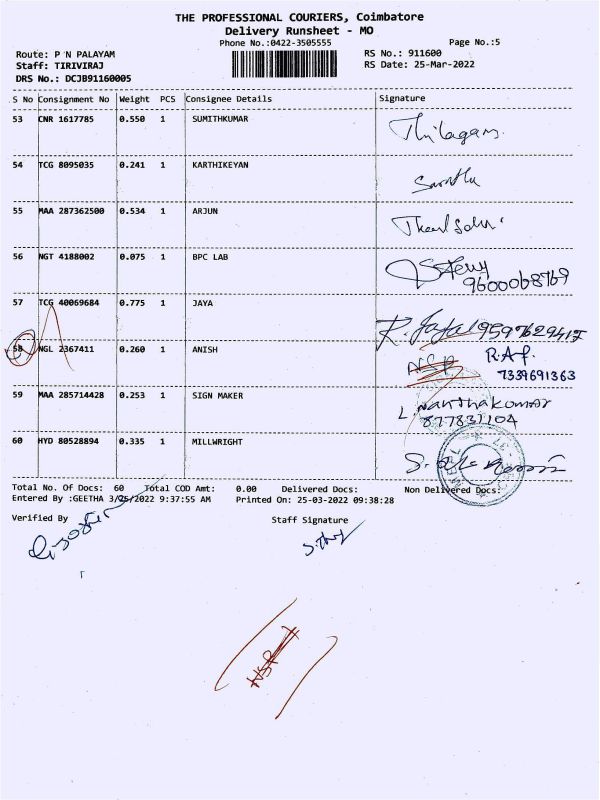 THE PROFESSIONAL COURIERS, Coimbatore
Delivery Runsheet - MO
Phone No.:0422-3505555
Page No.:5
Route: P N PALAYAM
RS No.: 911600
Staff: TIRIVIRAJ
RS Date: 25-Mar-2022
DRS No.: DCJB91160005
S No Consignment No Weight PCS Consignee Details Signature
53 CNR 1617785 0.550 1 SUMITHKUMAR Thilagam
54 TCG 8095035 0.241 1 KARTHIKEYAN
55 MAA 287362500 0.534 1 ARJUN
56 NGT 4188002 0.075 1 BPC LAB
9600068769
57 TCG 40069684 0.775 1 JAYA R. Jaya 9597629417
58 NGL 2367411 0.260 1 ANISH NSP R.A.P.
7339691363
59 MAA 285714428 0.253 1 SIGN MAKER L. Nanthakumar
877831104
60 HYD 80528894 0.335 1 MILLWRIGHT
Total No. Of Docs: 60 Total COD Amt: 0.00 Delivered Docs: Non Delivered Docs:
Entered By :GEETHA 3/25/2022 9:37:55 AM Printed On: 25-03-2022 09:38:28
Verified By Staff Signature
NSP